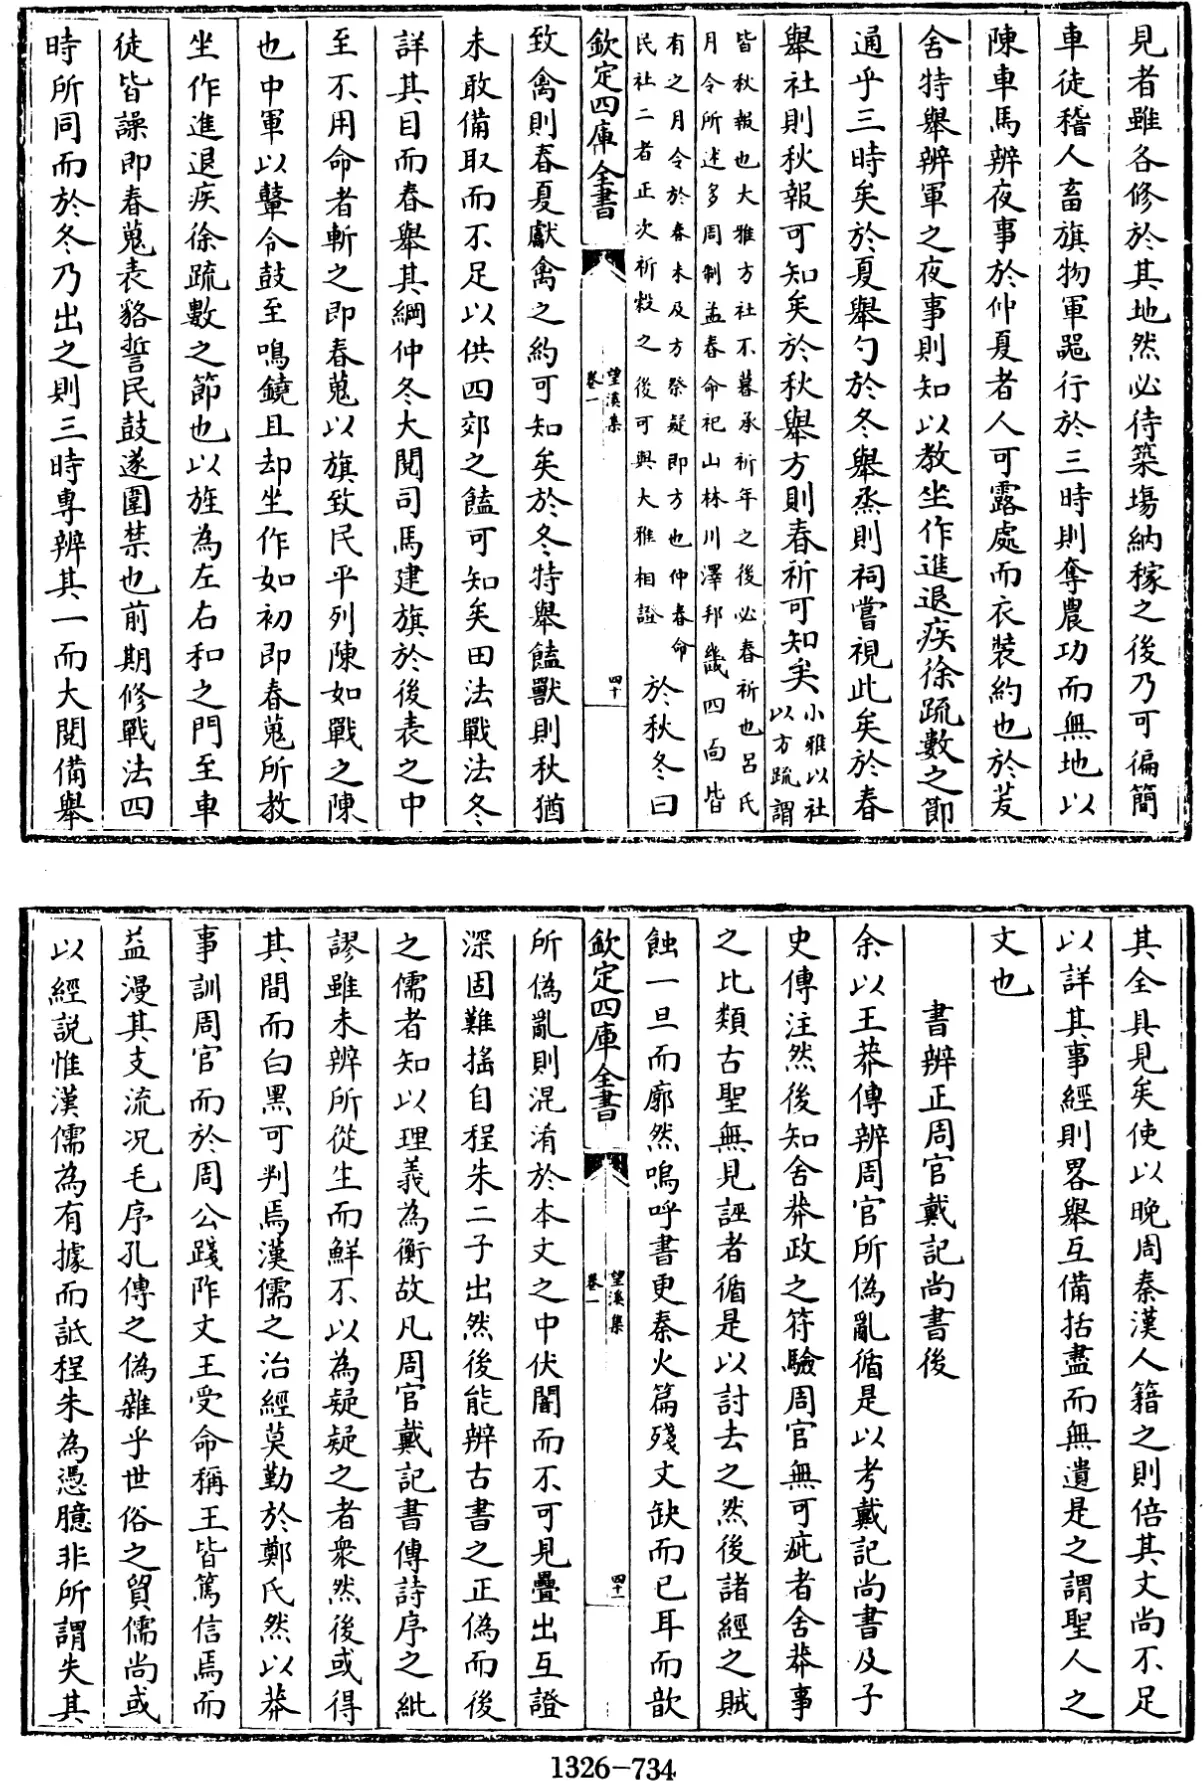 見者雖各修於其地然必待築場納稼之後乃可徧簡
車徒稽人畜旗物軍噐行於三時則奪農功而無地以
陳車馬辨夜事於仲夏者人可露處而衣裝約也於茇
舍特舉辨軍之夜事則知以教坐作進退疾徐疏數之節
通乎三時矣於夏舉勺於冬舉烝則祠嘗視此矣於春
舉社則秋報可知矣於秋舉方則春祈可知矣小雅以社
以方疏謂
皆秋報也大雅方社不暮承祈年之後必春祈也呂氏
月令所述多周制孟春命祀山林川澤邦畿四面皆
有之月令於春未及方祭疑即方也仲春命
民社二者正次祈穀之後可與大雅相證
於秋冬曰
欽定四庫全書
望溪集
卷一
四十
致禽則春夏獻禽之約可知矣於冬特舉饁獸則秋猶
未敢備取而不足以供四郊之饁可知矣田法戰法冬
詳其目而春舉其綱仲冬大閱司馬建旗於後表之中
至不用命者斬之即春蒐以旗致民平列陳如戰之陳
也中軍以鼙令鼓至鳴鐃且却坐作如初即春蒐所教
坐作進退疾徐疏數之節也以旌為左右和之門至車
徒皆譟即春蒐表貉誓民鼓遂圍禁也前期修戰法四
時所同而於冬乃出之則三時專辨其一而大閱備舉
其全具見矣使以晚周秦漢人籍之則倍其文尚不足
以詳其事經則畧舉互備括盡而無遺是之謂聖人之
文也
書辨正周官戴記尚書後
余以王莽傳辨周官所偽亂循是以考戴記尚書及子
史傳注然後知舍莽政之符驗周官無可疵者舍莽事
之比類古聖無見誣者循是以討去之然後諸經之賊
蝕一旦而廓然嗚呼書更秦火篇殘文缺而已耳而歆
欽定四庫全書
望溪集
卷一
四十一
所偽亂則混淆於本文之中伏闇而不可見疊出互證
深固難搖自程朱二子出然後能辨古書之正偽而後
之儒者知以理義為衡故凡周官戴記書傳詩序之紕
謬雖未辨所從生而鮮不以為疑疑之者衆然後或得
其間而白黑可判焉漢儒之治經莫勤於鄭氏然以莽
事訓周官而於周公踐阼文王受命稱王皆篤信焉而
益漫其支流况毛序孔傳之偽雜乎世俗之貿儒尚或
以經説惟漢儒為有據而詆程朱為憑臆非所謂失其
1326-734